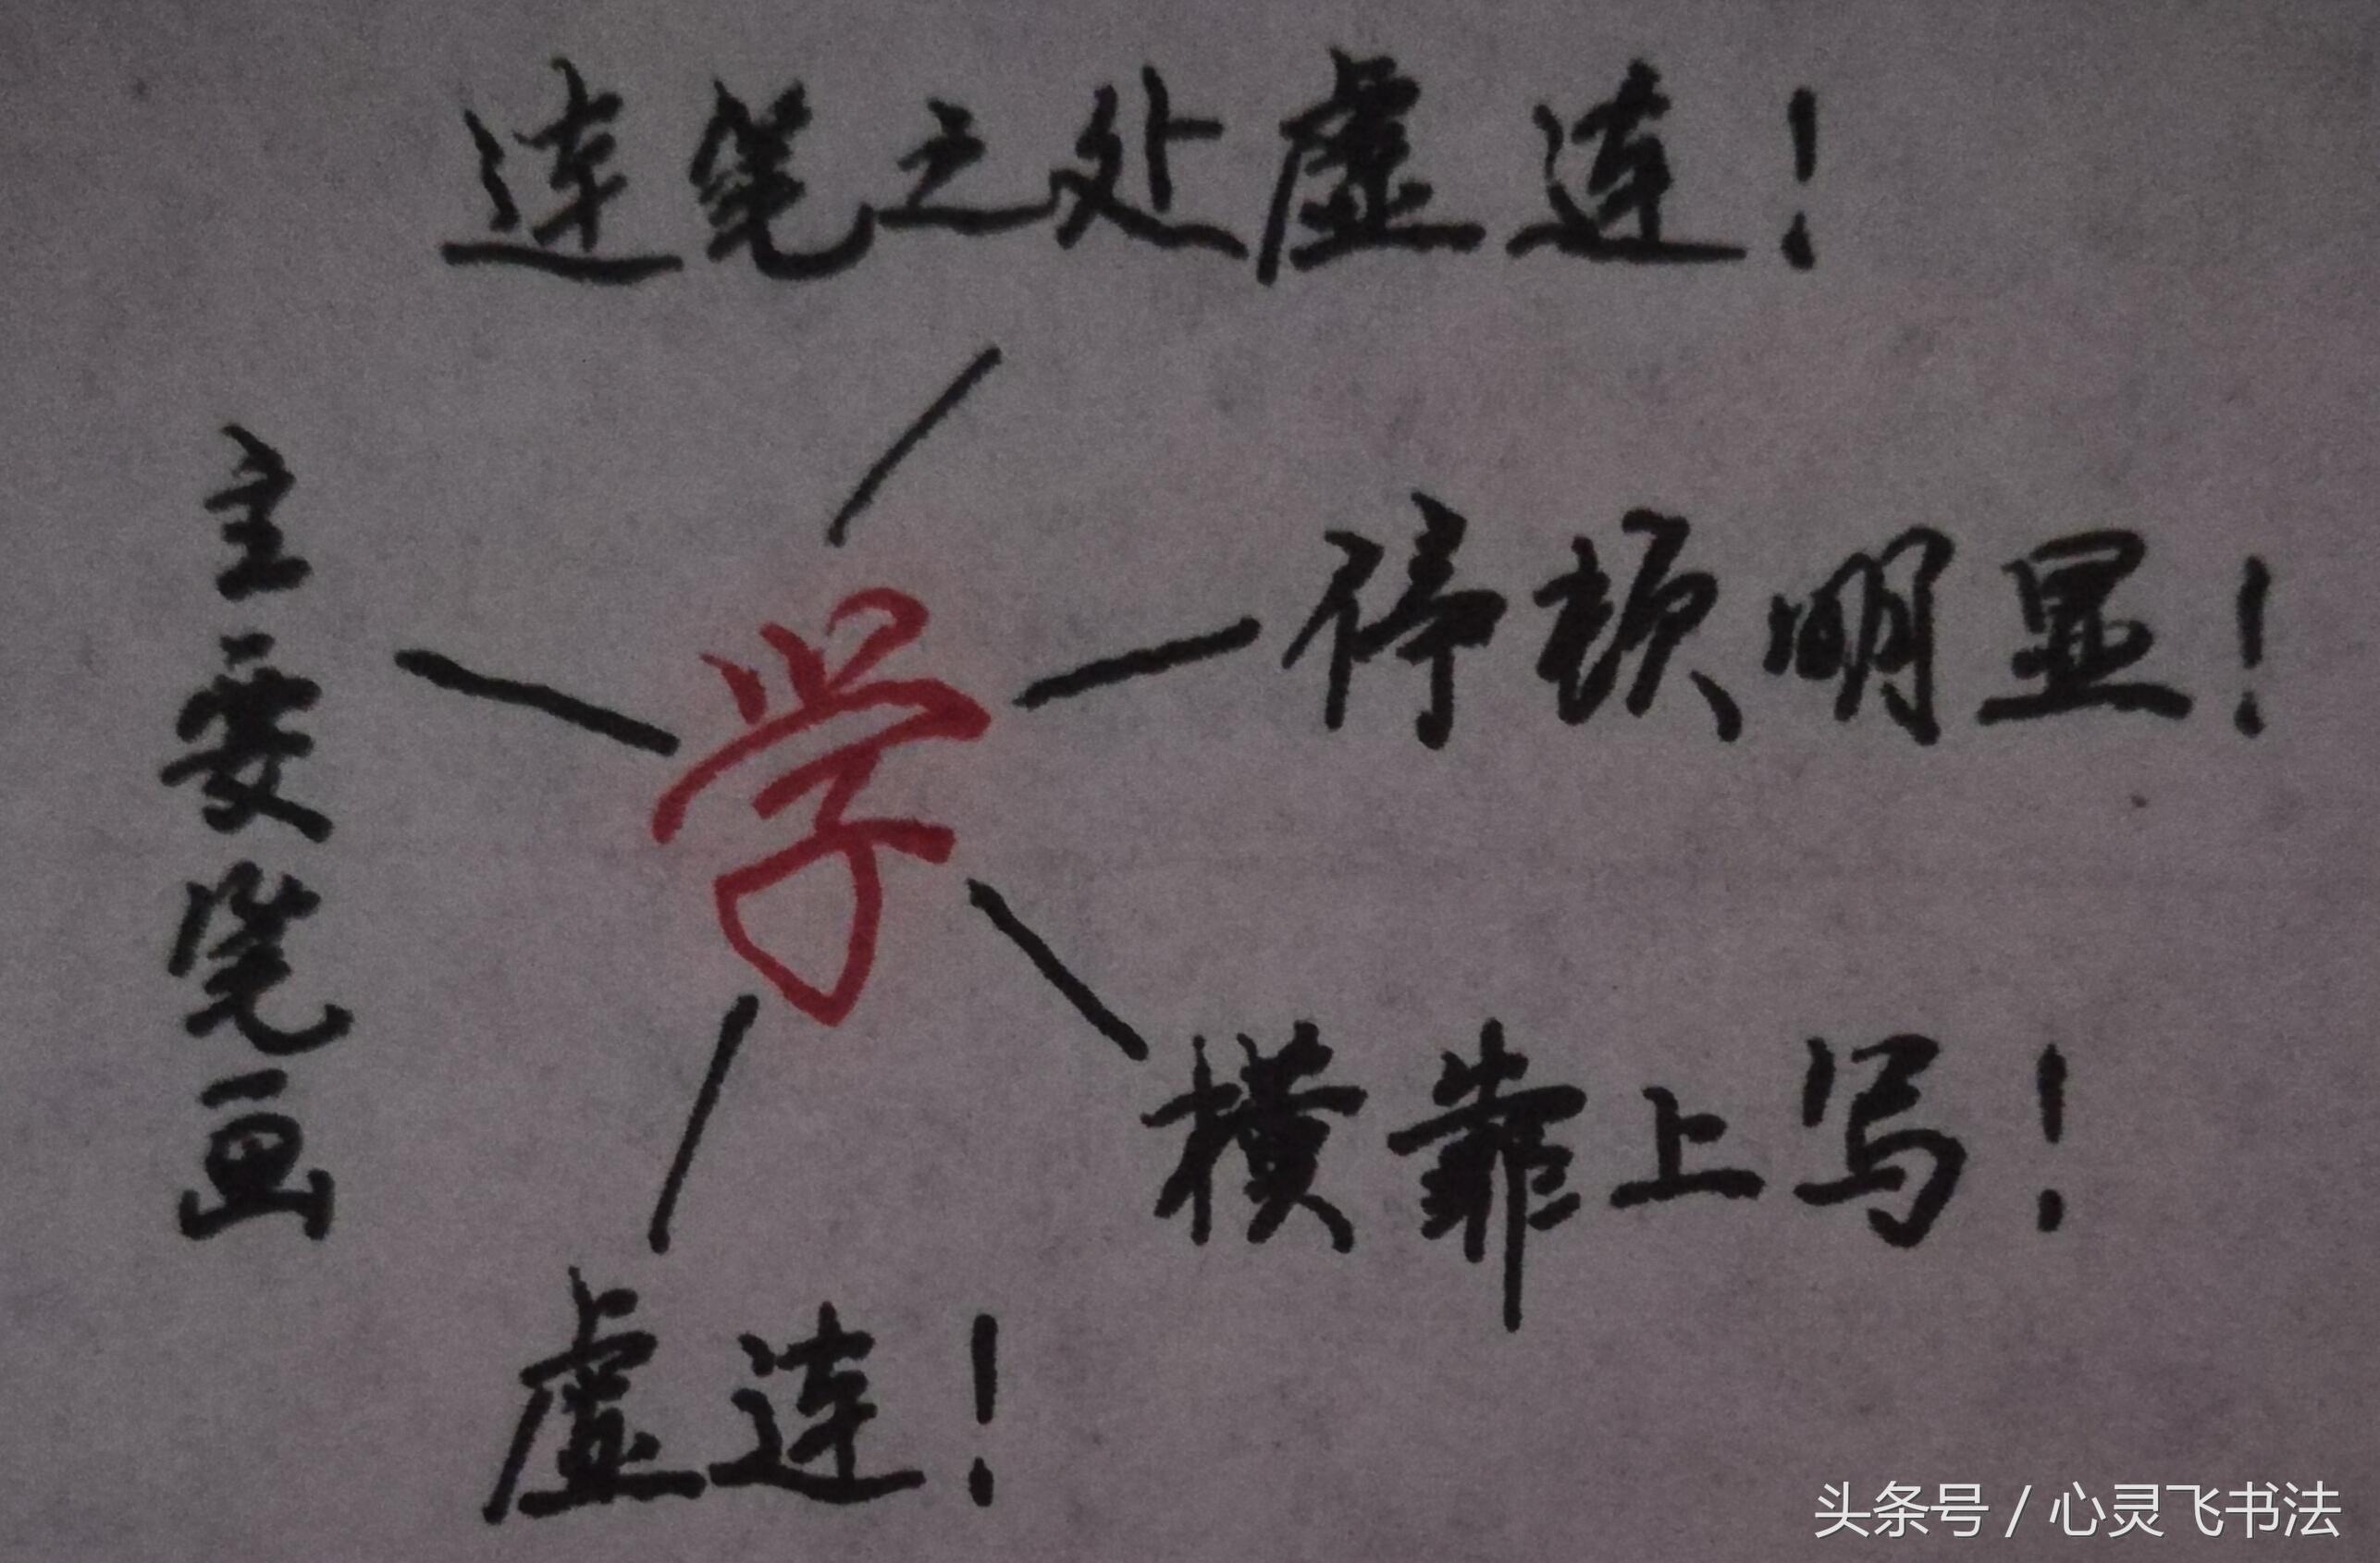 连笔之处虚连！
主要笔画
学
停顿明显！
横靠上写！
虚连！
头条号/心灵飞书法